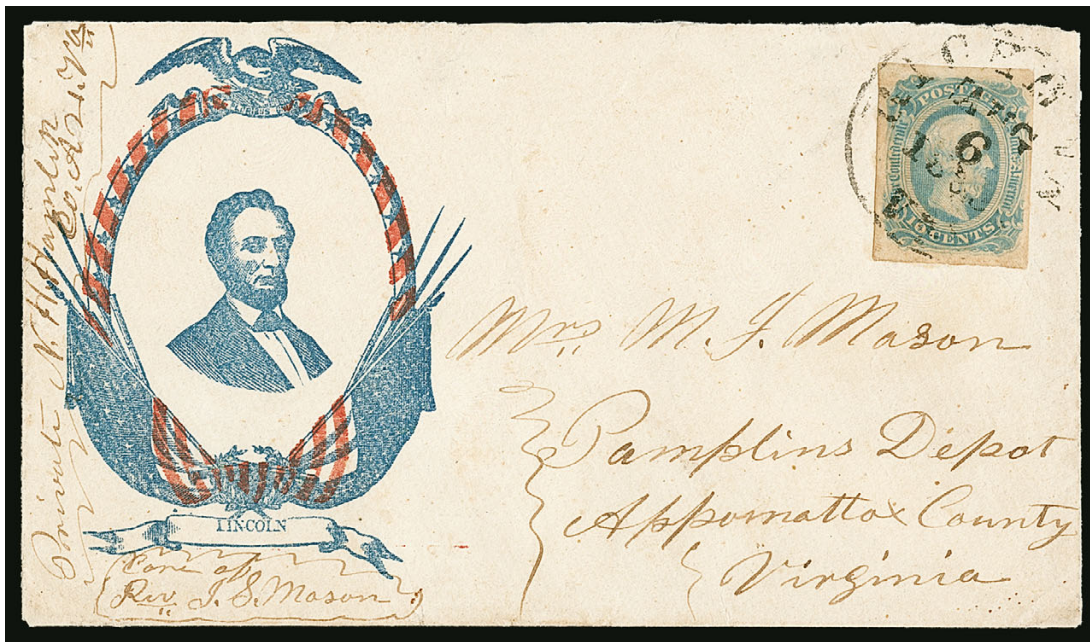 Private N. H. Hamlin
Co. A, 21. Va
LINCOLN
Care of
Rev. J. S. Mason
POSTAGE
AUG
6
CENTS
Mrs. M. J. Mason
Pamplins Depot
Appomattox County
Virginia